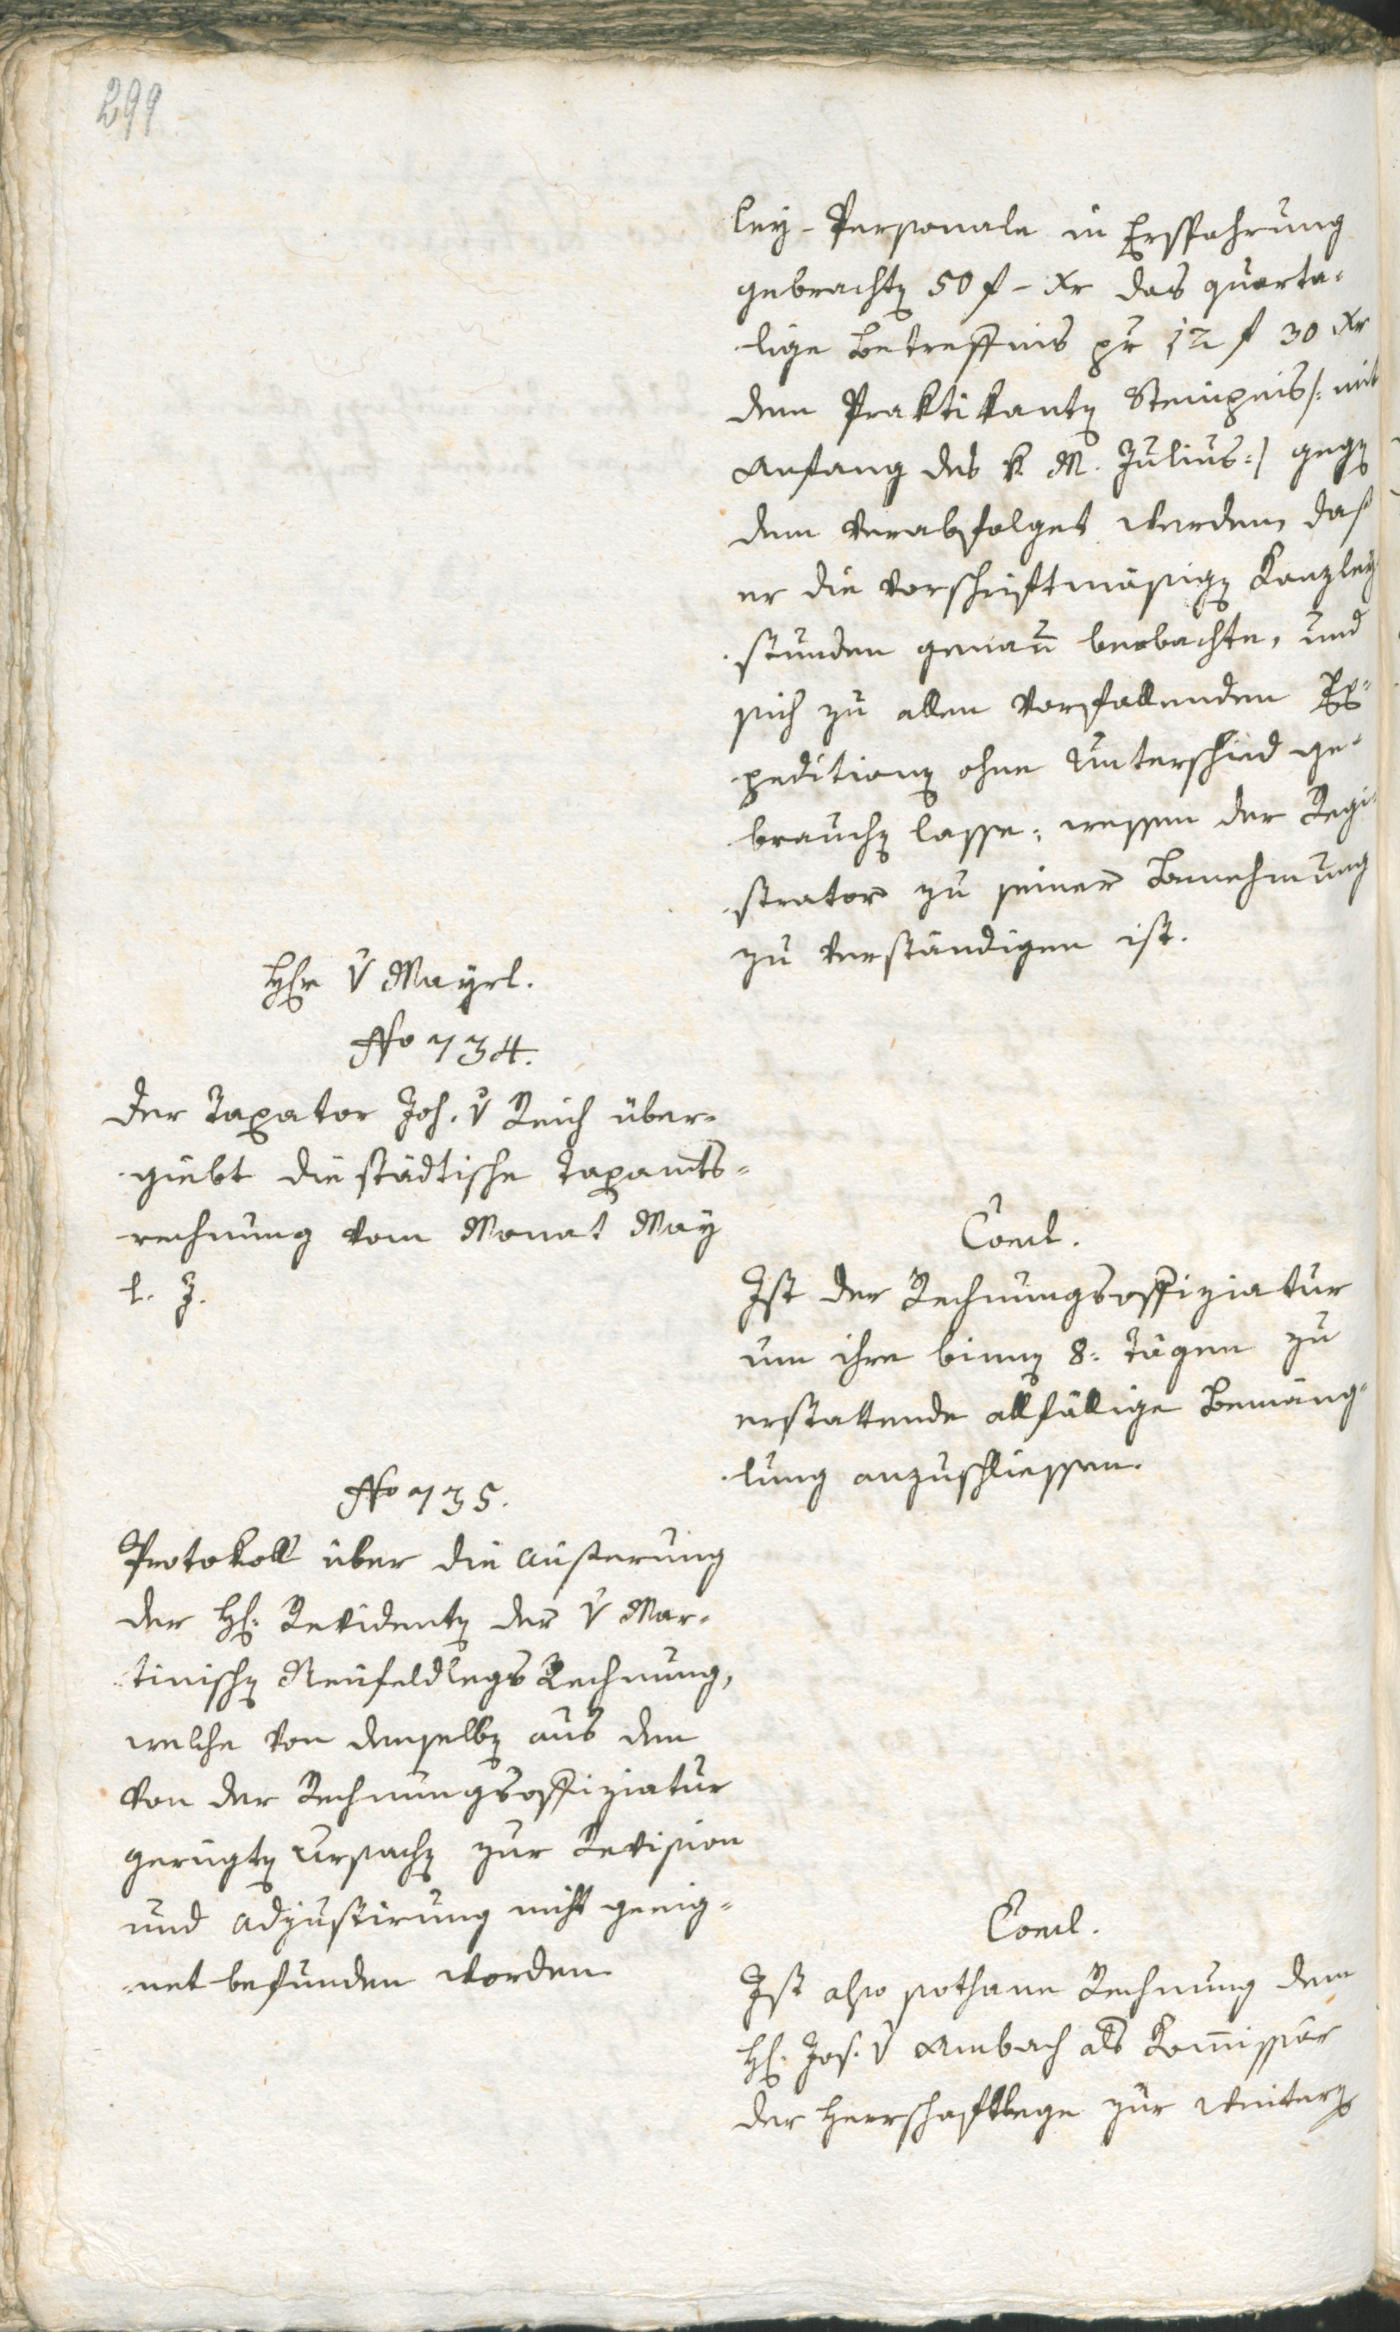 299
ley-Personale in Ersparung
gebrachten 50 f - xr das quarta-
lige Betreffnis pr 12 f 30 xr
dem Praktikanten /: mit
Anfang des k. M. Julius :/ gegen
dem verabfolget werden, daß
er die vorschriftmäsigen Kanzley
stunden genau beobachte, und
sich zu allen vorfallenden Ex-
peditionen ohne Unterschied ge-
brauchen lasse, wessen der Regi-
strator zu seiner Benehmung
zu verständigen ist.
Hhr v Mayrl.
No 734.
Der Taxator Joh. v Reich über-
giebt die städtische Taxamts-
rechnung vom Monat May
l. J.
Concl.
Ist der Rechnungsoffiziatur
um ihre binnen 8. Tägen zu
erstattende allfällige Bemäng-
lung anzuschliessen.
No 735.
Protokoll über die Äusserung
der Hh. Revidenten der v Mar-
tinischen Neufeldlegs Rechnung,
welche von denselben aus dem
von der Rechnungsoffiziatur
gerügten Ursachen zur Revision
und Adjustirung nicht geeig-
net befunden worden.
Concl.
Ist also sothane Rechnung dem
Hh. Jos. v Ambach als Kommissär
der Herrschaftlege zur weitern